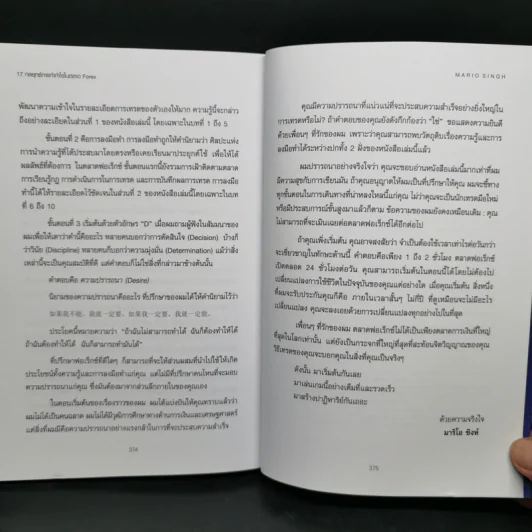 17 กลยุทธ์การทำกำไรในตลาด Forex
พัฒนาความเข้าใจในรายละเอียดการเทรดของตัวเองให้มาก ความรู้นี้จะกล่าว
ถึงอย่างละเอียดในส่วนที่ 1 ของหนังสือเล่มนี้ โดยเฉพาะในบทที่ 1 ถึง 5
ขั้นตอนที่ 2 คือการลงมือทำ การลงมือทำถูกให้คำนิยามว่า ศิลปะแห่ง
การนำความรู้ที่ได้ประสบมาโดยตรงหรือเคยเรียนมาประยุกต์ใช้ เพื่อให้ได้
ผลลัพธ์ที่ต้องการ ในตลาดฟอเร็กซ์ ขั้นตอนแรกนี้ยังรวมการเฝ้าติดตามตลาด
การเรียนรู้กฎ การดำเนินการในการเทรด และการบันทึกผลการเทรด การลงมือ
ทำนี้ได้ให้รายละเอียดไว้ชัดเจนในส่วนที่ 2 ของหนังสือเล่มนี้โดยเฉพาะในบท
ที่ 6 ถึง 10
ขั้นตอนที่ 3 เริ่มต้นด้วยตัวอักษร "D" เมื่อผมถามผู้ฟังในสัมมนาของ
ผมเพื่อให้เดาว่าคำนี้คืออะไร หลายคนบอกว่าการตัดสินใจ (Decision) บ้างก็
ว่าวินัย (Discipline) หลายคนก็บอกว่าความมุ่งมั่น (Determination) แม้ว่าสิ่ง
เหล่านี้จะเป็นคุณสมบัติที่ดี แต่คำตอบก็ไม่ใช่สิ่งที่กล่าวมาข้างต้นนั้น
คำตอบคือ ความปรารถนา (Desire)
นิยามของความปรารถนาคืออะไร ที่ปรึกษาของผมได้ให้คำนิยามไว้ว่า
如果我不能，我就一定要，如果我一定要，我就一定能。
ประโยคนี้หมายความว่า "ถ้าฉันไม่สามารถทำได้ ฉันก็ต้องทำให้ได้
ถ้าฉันต้องทำให้ได้ ฉันก็สามารถทำมันได้"
ที่ปรึกษาฟอเร็กซ์ที่ดีใดๆ ก็สามารถที่จะให้ส่วนผสมที่นำไปใช้ให้เกิด
ประโยชน์ทั้งความรู้และการลงมือทำแก่คุณ แต่ไม่มีที่ปรึกษาคนไหนที่จะมอบ
ความปรารถนาแก่คุณ ซึ่งมันต้องมาจากส่วนลึกภายในของคุณเอง
ในตอนเริ่มต้นของเรื่องราวของผม ผมได้แบ่งปันให้คุณทราบแล้วว่า
ผมไม่ได้เป็นคนฉลาด ผมไม่ได้มีวุฒิการศึกษาทางด้านการเงินและเศรษฐศาสตร์
แต่สิ่งที่ผมมีคือความปรารถนาอย่างแรงกล้าในการที่จะประสบความสำเร็จ
374
MARIO SINGH
คุณมีความปรารถนาที่แน่วแน่ที่จะประสบความสำเร็จอย่างยิ่งใหญ่ใน
การเทรดหรือไม่? ถ้าคำตอบของคุณยังดังกึกก้องว่า "ใช่" ขอแสดงความยินดี
ด้วยเพื่อนๆ ที่รักของผม เพราะว่าคุณสามารถพบวัตถุดิบเรื่องความรู้และการ
ลงมือทำได้ระหว่างปกทั้ง 2 ฝั่งของหนังสือเล่มนี้แล้ว
ผมปรารถนาอย่างจริงใจว่า คุณจะชอบอ่านหนังสือเล่มนี้มากเท่าที่ผม
มีความสุขกับการเขียนมัน ถ้าคุณอนุญาตให้ผมเป็นที่ปรึกษาให้คุณ ผมจะชี้ทาง
ทุกขั้นตอนในการเดินทางที่น่าหลงใหลนี้แก่คุณ ไม่ว่าคุณจะเป็นนักเทรดมือใหม่
หรือมีประสบการณ์ขั้นสูงมาแล้วก็ตาม ข้อความของผมยังคงเหมือนเดิม : คุณ
ไม่สามารถที่จะเมินเฉยต่อตลาดฟอเร็กซ์ได้อีกต่อไป
ถ้าคุณเพิ่งเริ่มต้น คุณอาจสงสัยว่า จำเป็นต้องใช้เวลาเท่าไรต่อวันกว่า
จะเชี่ยวชาญในทักษะด้านนี้ คำตอบคือเพียง 1 ถึง 2 ชั่วโมง ตลาดฟอเร็กซ์
เปิดตลอด 24 ชั่วโมงต่อวัน คุณสามารถเริ่มต้นในตอนนี้ได้โดยไม่ต้องไป
เปลี่ยนแปลงการใช้ชีวิตในปัจจุบันของคุณแต่อย่างใด เมื่อคุณเริ่มต้น สิ่งหนึ่ง
ที่ผมจะรับประกันกับคุณคือ ภายในเวลาสั้นๆ ไม่กี่ปี ที่ดูเหมือนจะไม่มีอะไร
เปลี่ยนแปลง คุณจะลงเอยด้วยการเปลี่ยนแปลงทุกอย่างไปในที่สุด
เพื่อนๆ ที่รักของผม ตลาดฟอเร็กซ์ไม่ได้เป็นเพียงตลาดการเงินที่ใหญ่
ที่สุดในโลกเท่านั้น แต่ยังเป็นกระจกที่ใหญ่ที่สุดที่สะท้อนจิตวิญญาณของคุณ
วิธีเทรดของคุณจะบอกคุณในสิ่งที่คุณเป็นจริงๆ
ดังนั้น มาเริ่มต้นกันเลย
มาเล่นเกมนี้อย่างเต็มที่และรวดเร็ว
มาสร้างปาฏิหาริย์กันเถอะ
ด้วยความจริงใจ
มาริโอ ซิงห์
375